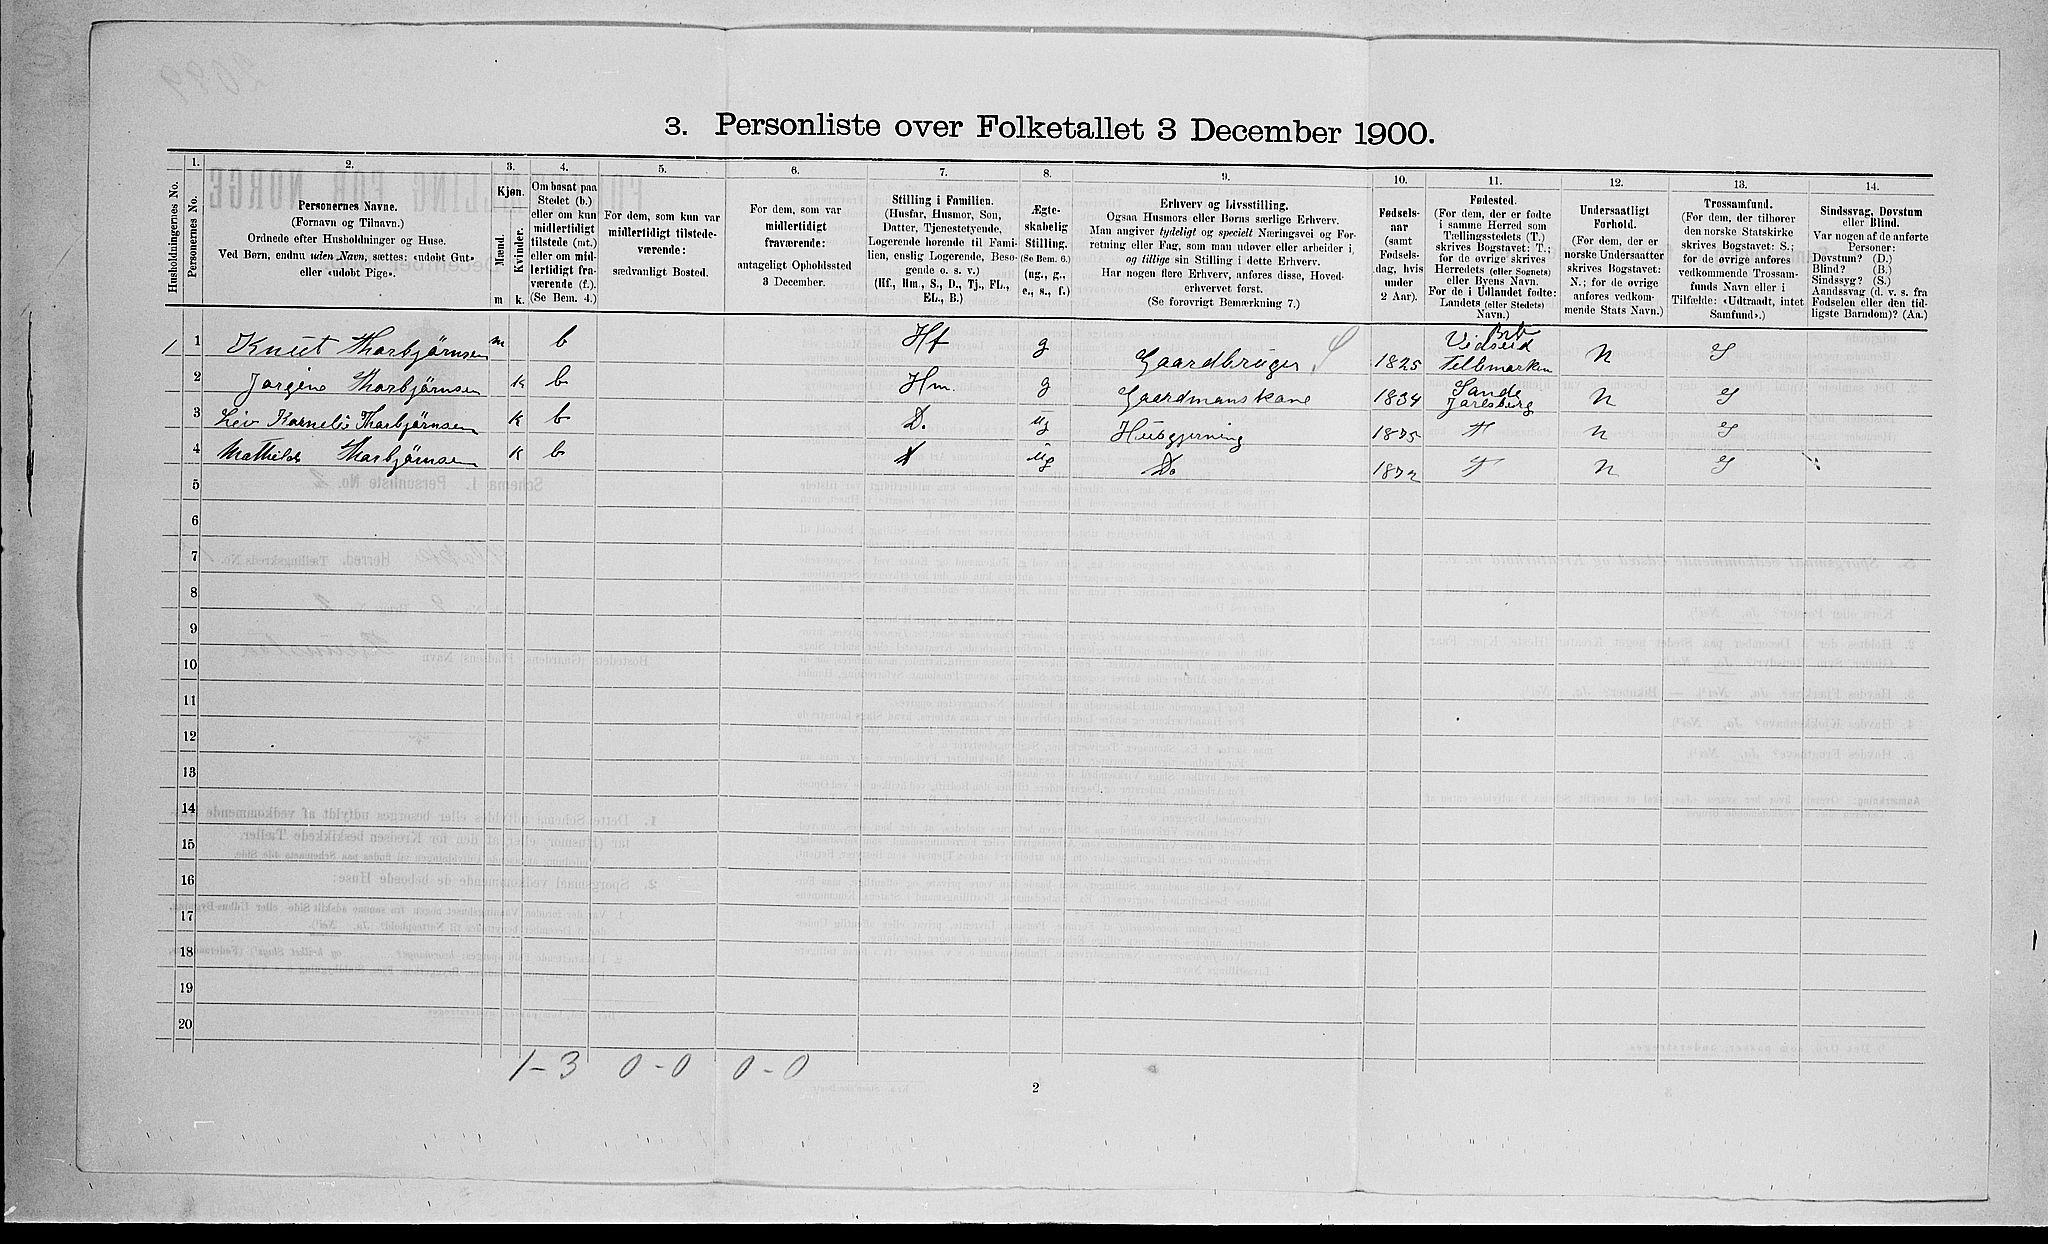 3. Personliste over Folketallet 3 December 1900.
Husholdningernes No.
1.
Personernes No.
2.
Personernes Navne.
(Fornavn og Tilnavn.)
Ordnede efter Husholdninger og Huse.
Ved Børn, endnu uden Navn, sættes: «udøbt Gut»
eller «udøbt Pige».
3.
Kjøn.
Mænd.
Kvinder.
m k.
4.
Om bosat paa
Stedet (b.)
eller om kun
midlertidigt
tilstede (mt.)
eller om mid-
lertidigt fra-
værende (f.).
(Se Bem. 4.)
5.
For dem, som kun var
midlertidigt tilstede-
værende:
sædvanligt Bosted.
6.
For dem, som var
midlertidigt
fraværende:
antageligt Opholdssted
3 December.
7.
Stilling i Familien.
(Husfar, Husmor, Søn,
Datter, Tjenestetyende,
Logerende hørende til Fami-
lien, enslig Logerende, Besø-
gende o. s. v.)
(Hf., Hm., S., D., Tj., FL.,
EL., B.)
8.
Ægte-
skabelig
Stilling.
(Se Bem. 6.)
(ug., g.,
e., s., f.)
9.
Erhverv og Livsstilling.
Ogsaa Husmors eller Børns særlige Erhverv.
Man angiver tydeligt og specielt Næringsvei og For-
retning eller Fag, som man udøver eller arbeider i,
og tillige sin Stilling i dette Erhverv.
Har nogen flere Erhverv, anføres disse, Hoved-
erhvervet først.
(Se forøvrigt Bemærkning 7.)
10.
Fødsels-
aar
(samt
Fødsels-
dag, hvis
under
2 Aar).
11.
Fødested.
(For dem, der er fødte
i samme Herred som
Tællingsstedets (T.)
skrives Bogstavet: T.;
for de øvrige skrives
Herredets (eller Sognets)
eller Byens Navn.
For de i Udlandet fødte:
Landets (eller Stedets)
Navn.)
12.
Undersaatligt
Forhold.
(For dem, der er
norske Undersaatter
skrives Bogstavet:
N.; for de øvrige
anføres vedkom-
mende Stats Navn.)
13.
Trossamfund.
(For dem, der tilhører
den norske Statskirke
skrives Bogstavet: S.;
for de øvrige anføres
vedkommende Trossam-
funds Navn eller i
Tilfælde: «Udtraadt, intet
Samfund».)
14.
Sindssvag, Døvstum
eller Blind.
Var nogen af de anførte
Personer:
Døvstum? (D.)
Blind? (B.)
Sindssyg? (S.)
Aandssvag (d. v. s. fra
Fødselen eller den tid-
ligste Barndom)? (Aa.)
1 1 Knut Thorbjørnsen m b Hf g Gaardbruger 1825 Vidseid Tellemarken N S
2 Jorgine Thorbjørnsen K b Hm. g Gaardmanskone 1834 Sande Jarlsberg N S
3 Liv Kornelie Thorbjørnsen K b D. ug Husgjerning 1875 T N S
4 Mathilde Thorbjørnsen K b D ug Do 1872 T N S
5
6
7
8
9
10
11
12
13
14
15
16
17
18
19
20
1-3 0-0 0-0
2